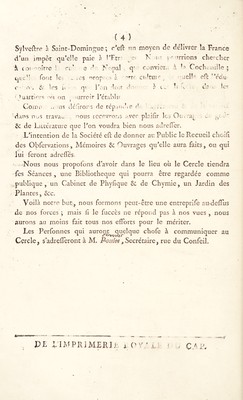 ( 4 )
Sylvestre à Saint-Domingue; c'est un moyen de délivrer la France
d'un impôt qu'elle paie à l'Etranger. Nous pourrions chercher
à connoître le Nopal qui convient à la Cochenille;
quelles sont les propres à cette culture, quelle est l'édu-
& les que l'on doit donner à dans les
Quartiers où on pourroit l'établir.
Comme nous désirons de répandre de
dans nos travaux nous recevrons avec plaisir les Ouvrages de goût
& de Littérature que l'on voudra bien nous adresser.
L'intention de la Société est de donner au Public le Recueil choisi
des Observations, Mémoires & Ouvrages qu'elle aura faits, ou qui
lui seront adressés.
Nous nous proposons d'avoir dans le lieu où le Cercle tiendra
ses Séances, une Bibliotheque qui pourra être regardée comme
publique, un Cabinet de Physique & de Chymie, un Jardin des
Plantes, &c.
Voilà notre but, nous formons peut-être une entreprise au-dessus
de nos forces; mais si le succès ne répond pas à nos vues, nous
aurons au moins fait tous nos efforts pour le mériter.
Les Personnes qui auront quelque chose à communiquer au
Cercle, s'adresseront à M. Secrétaire, rue du Conseil.
DE L'IMPRIMERIE ROYALE DU CAP.